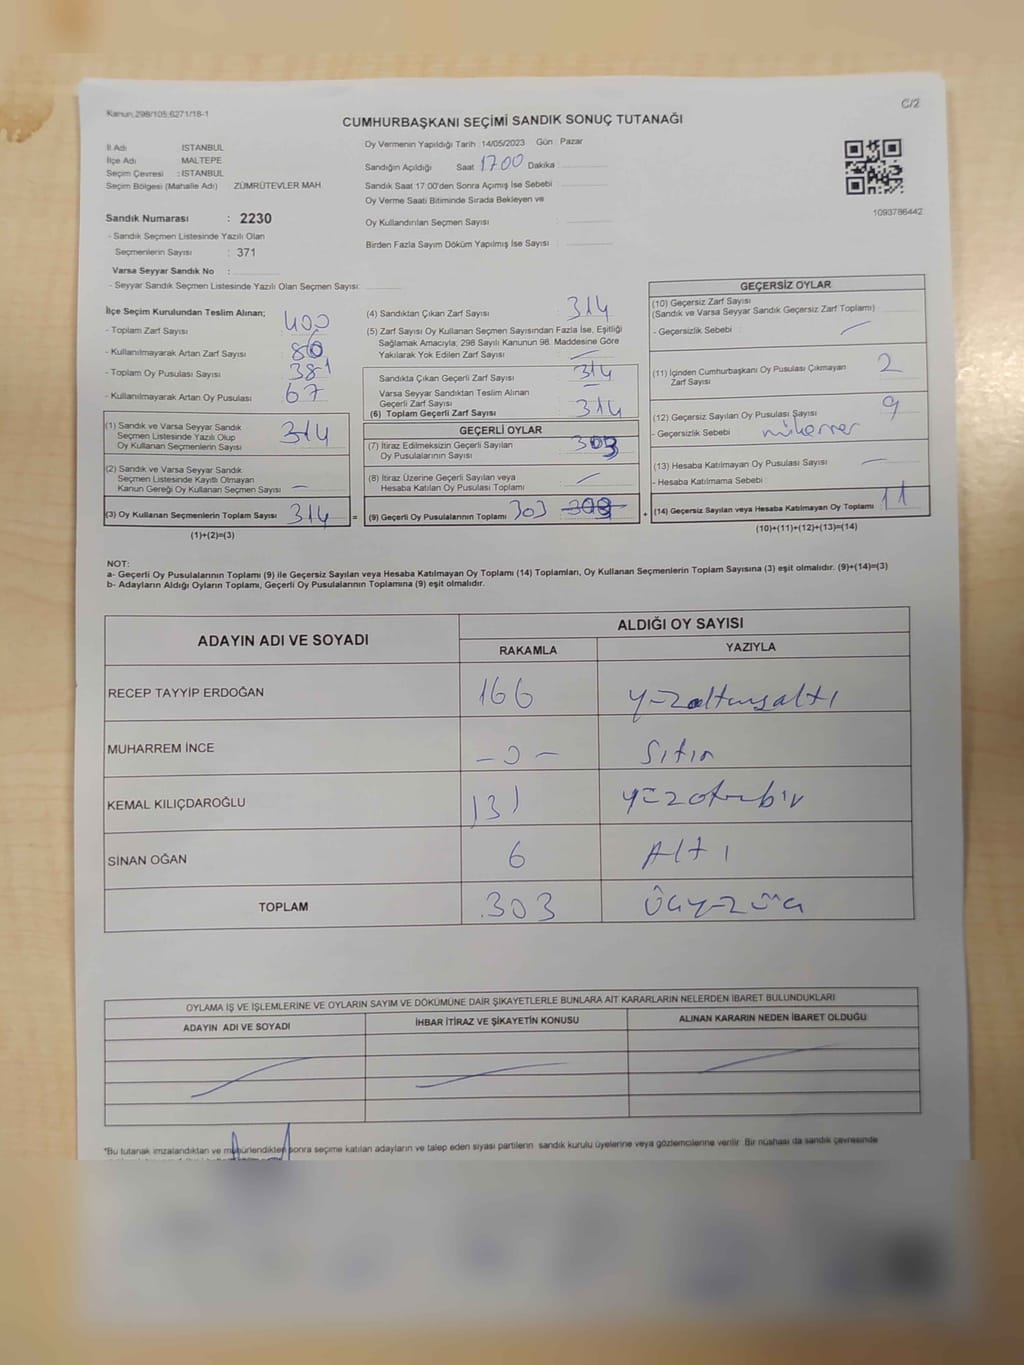 Kanun:298/105;6271/18-1
C/2
CUMHURBAŞKANI SEÇİMİ SANDIK SONUÇ TUTANAĞI
İl Adı ISTANBUL
İlçe Adı MALTEPE
Seçim Çevresi : ISTANBUL
Seçim Bölgesi (Mahalle Adı) ZÜMRÜTEVLER MAH.
Sandık Numarası : 2230
- Sandık Seçmen Listesinde Yazılı Olan
Seçmenlerin Sayısı : 371
Varsa Seyyar Sandık No :
- Seyyar Sandık Seçmen Listesinde Yazılı Olan Seçmen Sayısı:
Oy Vermenin Yapıldığı Tarih : 14/05/2023 Gün : Pazar
Sandığın Açıldığı Saat 1700 Dakika
Sandık Saat 17.00'den Sonra Açımış İse Sebebi :
Oy Verme Saati Bitiminde Sırada Bekleyen ve
Oy Kullandırılan Seçmen Sayısı :
Birden Fazla Sayım Döküm Yapılmış İse Sayısı :
1093786442
İlçe Seçim Kurulundan Teslim Alınan;
- Toplam Zarf Sayısı 400
- Kullanılmayarak Artan Zarf Sayısı 86
- Toplam Oy Pusulası Sayısı 381
- Kullanılmayarak Artan Oy Pusulası 67
(1) Sandık ve Varsa Seyyar Sandık
Seçmen Listesinde Yazılı Olup
Oy Kullanan Seçmenlerin Sayısı 314
(2) Sandık ve Varsa Seyyar Sandık
Seçmen Listesinde Kayıtlı Olmayan
Kanun Gereği Oy Kullanan Seçmen Sayısı –
(3) Oy Kullanan Seçmenlerin Toplam Sayısı 314 =
(1)+(2)=(3)
(4) Sandıktan Çıkan Zarf Sayısı : 314
(5) Zarf Sayısı Oy Kullanan Seçmen Sayısından Fazla İse, Eşitliği
Sağlamak Amacıyla; 298 Sayılı Kanunun 98. Maddesine Göre
Yakılarak Yok Edilen Zarf Sayısı : –
Sandıkta Çıkan Geçerli Zarf Sayısı 314
Varsa Seyyar Sandıktan Teslim Alınan
Geçerli Zarf Sayısı –
(6) Toplam Geçerli Zarf Sayısı 314
GEÇERLİ OYLAR
(7) İtiraz Edilmeksizin Geçerli Sayılan
Oy Pusulalarının Sayısı 303
(8) İtiraz Üzerine Geçerli Sayılan veya
Hesaba Katılan Oy Pusulası Toplamı –
(9) Geçerli Oy Pusulalarının Toplamı 303 +
GEÇERSİZ OYLAR
(10) Geçersiz Zarf Sayısı
(Sandık ve Varsa Seyyar Sandık Geçersiz Zarf Toplamı)
- Geçersizlik Sebebi : –
(11) İçinden Cumhurbaşkanı Oy Pusulası Çıkmayan
Zarf Sayısı 2
(12) Geçersiz Sayılan Oy Pusulası Sayısı 9
- Geçersizlik Sebebi : mükerrer
(13) Hesaba Katılmayan Oy Pusulası Sayısı –
- Hesaba Katılmama Sebebi :
(14) Geçersiz Sayılan veya Hesaba Katılmayan Oy Toplamı 11
(10)+(11)+(12)+(13)=(14)
NOT:
a- Geçerli Oy Pusulalarının Toplamı (9) ile Geçersiz Sayılan veya Hesaba Katılmayan Oy Toplamı (14) Toplamları, Oy Kullanan Seçmenlerin Toplam Sayısına (3) eşit olmalıdır. (9)+(14)=(3)
b- Adayların Aldığı Oyların Toplamı, Geçerli Oy Pusulalarının Toplamına (9) eşit olmalıdır.
ADAYIN ADI VE SOYADI ALDIĞI OY SAYISI
RAKAMLA YAZIYLA
RECEP TAYYİP ERDOĞAN 166 yüzaltmışaltı
MUHARREM İNCE – 0 – Sıfır
KEMAL KILIÇDAROĞLU 131 yüzotuzbir
SİNAN OĞAN 6 Altı
TOPLAM 303 Üçyüzüç
OYLAMA İŞ VE İŞLEMLERİNE VE OYLARIN SAYIM VE DÖKÜMÜNE DAİR ŞİKAYETLERLE BUNLARA AİT KARARLARIN NELERDEN İBARET BULUNDUKLARI
ADAYIN ADI VE SOYADI İHBAR İTİRAZ VE ŞİKAYETİN KONUSU ALINAN KARARIN NEDEN İBARET OLDUĞU
*Bu tutanak imzalandıktan ve mühürlendikten sonra seçime katılan adayların ve talep eden siyasi partilerin sandık kurulu üyelerine veya gözlemcilerine verilir. Bir nüshası da sandık çevresinde